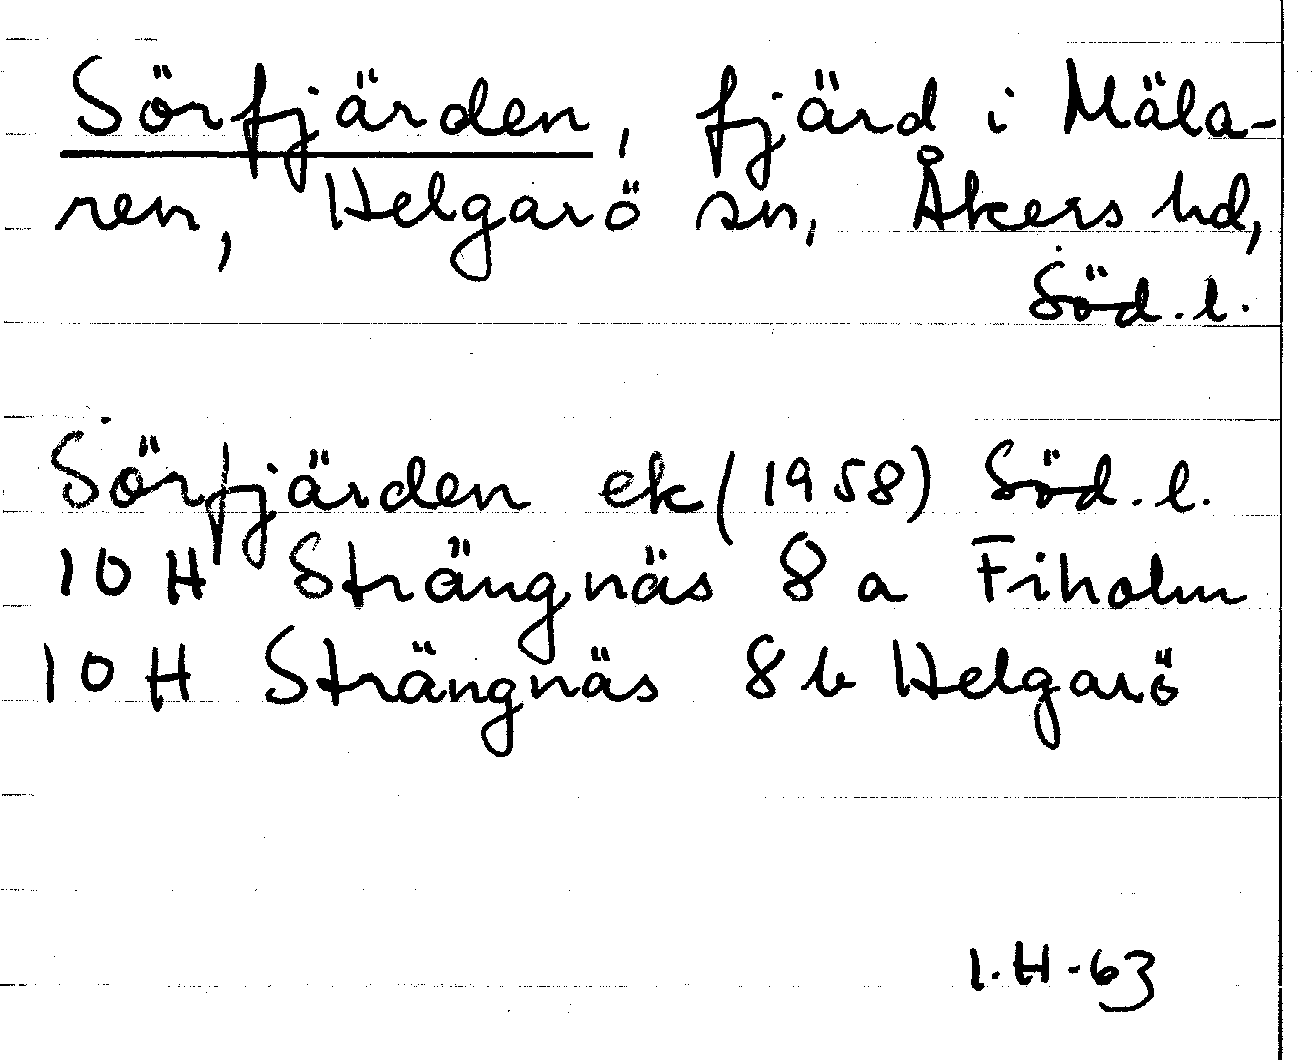 Sörfjärden, fjärd i Mäla-
ren, Helgarö sn, Åkers hd,
Söd. l.
Sörfjärden ek (1958) Söd. l.
10 H Strängnäs 8 a Fiholm
10 H Strängnäs 8 b Helgarö
I.H-63